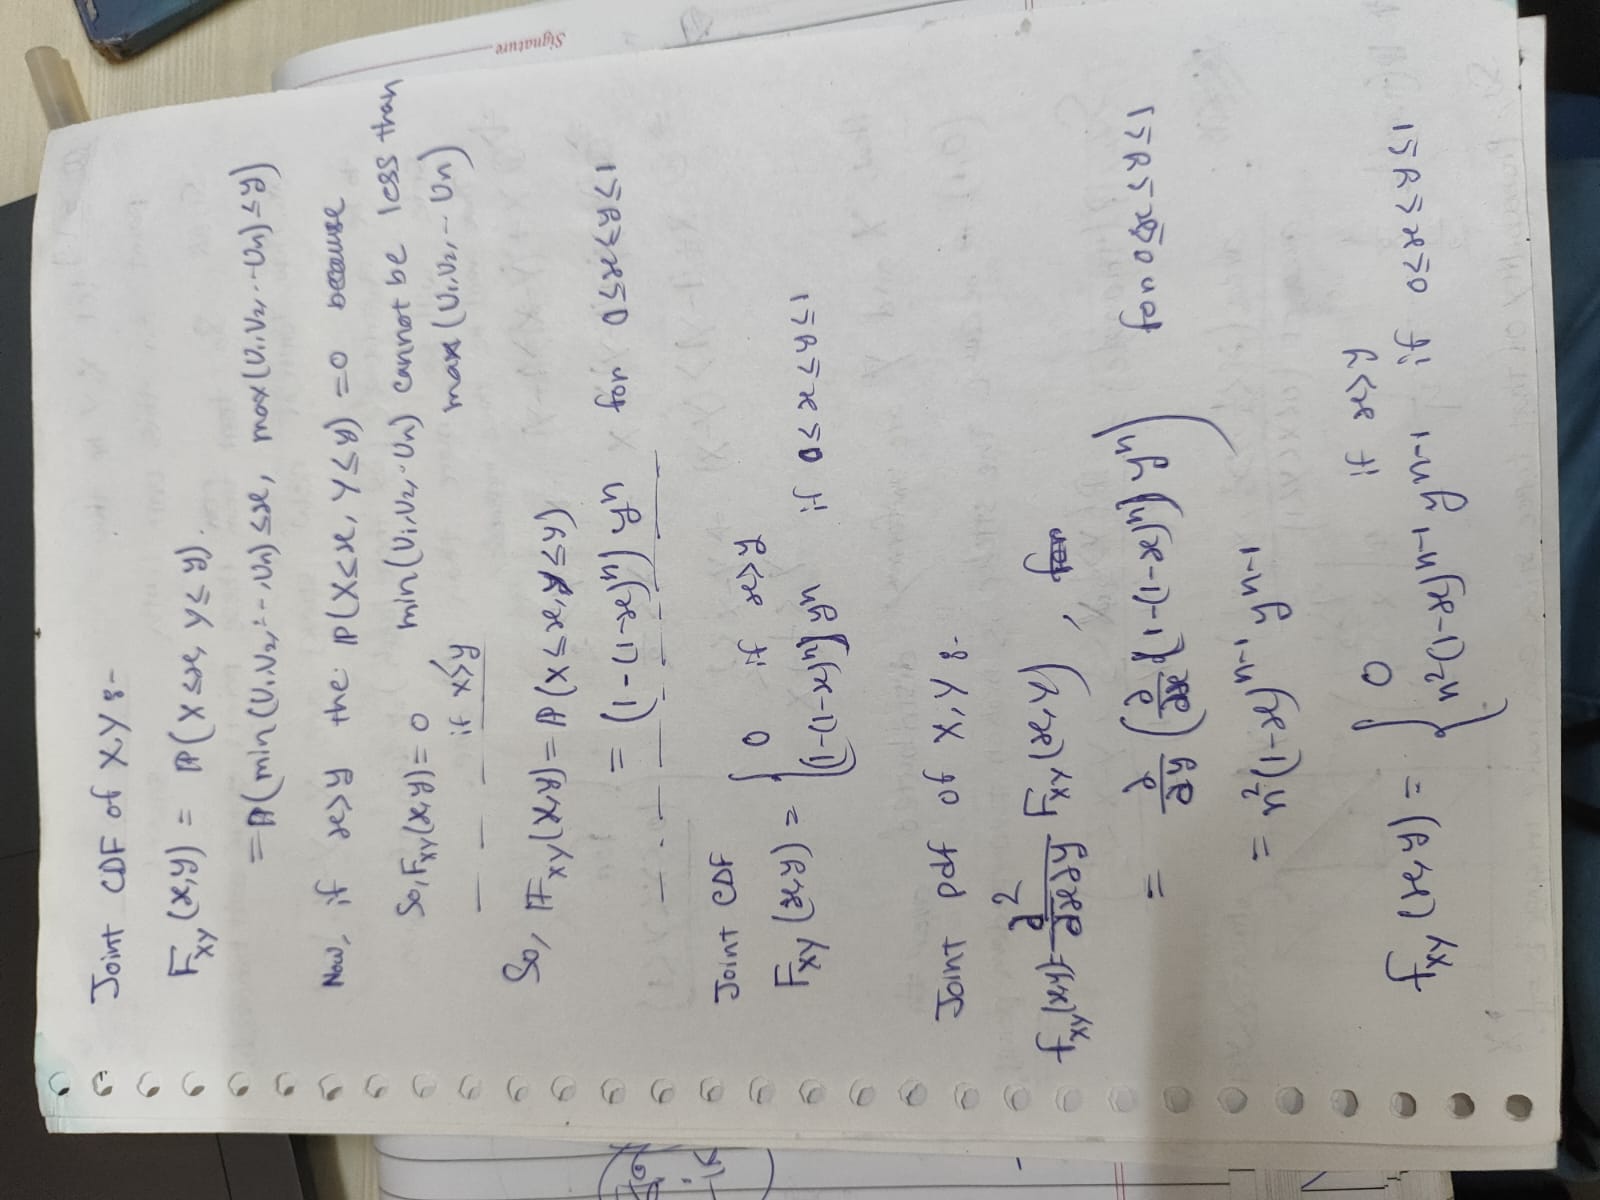 Joint CDF of X,Y :-
F_XY (x,y) = ℙ(X ≤ x, Y ≤ y).
= ℙ(min(U1,U2,--,Un) ≤ x, max(U1,U2,--Un) ≤ y)
Now, if x>y the ℙ(X≤x, Y≤y) = 0 because
So, F_XY(x,y) = 0 , min(U1,U2,-Un) cannot be less than
if x>y max(U1,U2,-- Un)
So, F_XY(x,y) = ℙ(X ≤ x, Y ≤ y)
= (1-(1-x)^n) y^n for 0≤x≤y≤1
Joint CDF
F_XY (x,y) = { 0 if x>y
(1-(1-x)^n) y^n if 0≤x≤y≤1
Joint pdf of X,Y :-
f_XY(x,y) = ∂²/∂x∂y F_XY(x,y) ,
= ∂/∂y (∂/∂x (1-(1-x)^n) y^n) for 0≤x≤y≤1
= n²(1-x)^n-1 y^n-1
f_XY (x,y) = { 0 if x>y
n²(1-x)^n-1 y^n-1 if 0≤x≤y≤1
Signature